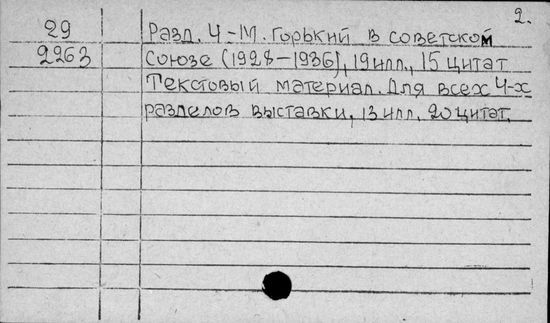 2.
29 Разд. 4-М. Горький в советском
2263 Союзе (1928-1936), 19 илл., 15 цитат
Текстовый материал. Для всех 4-х
разделов выставки, 13 илл., 20 цитат.